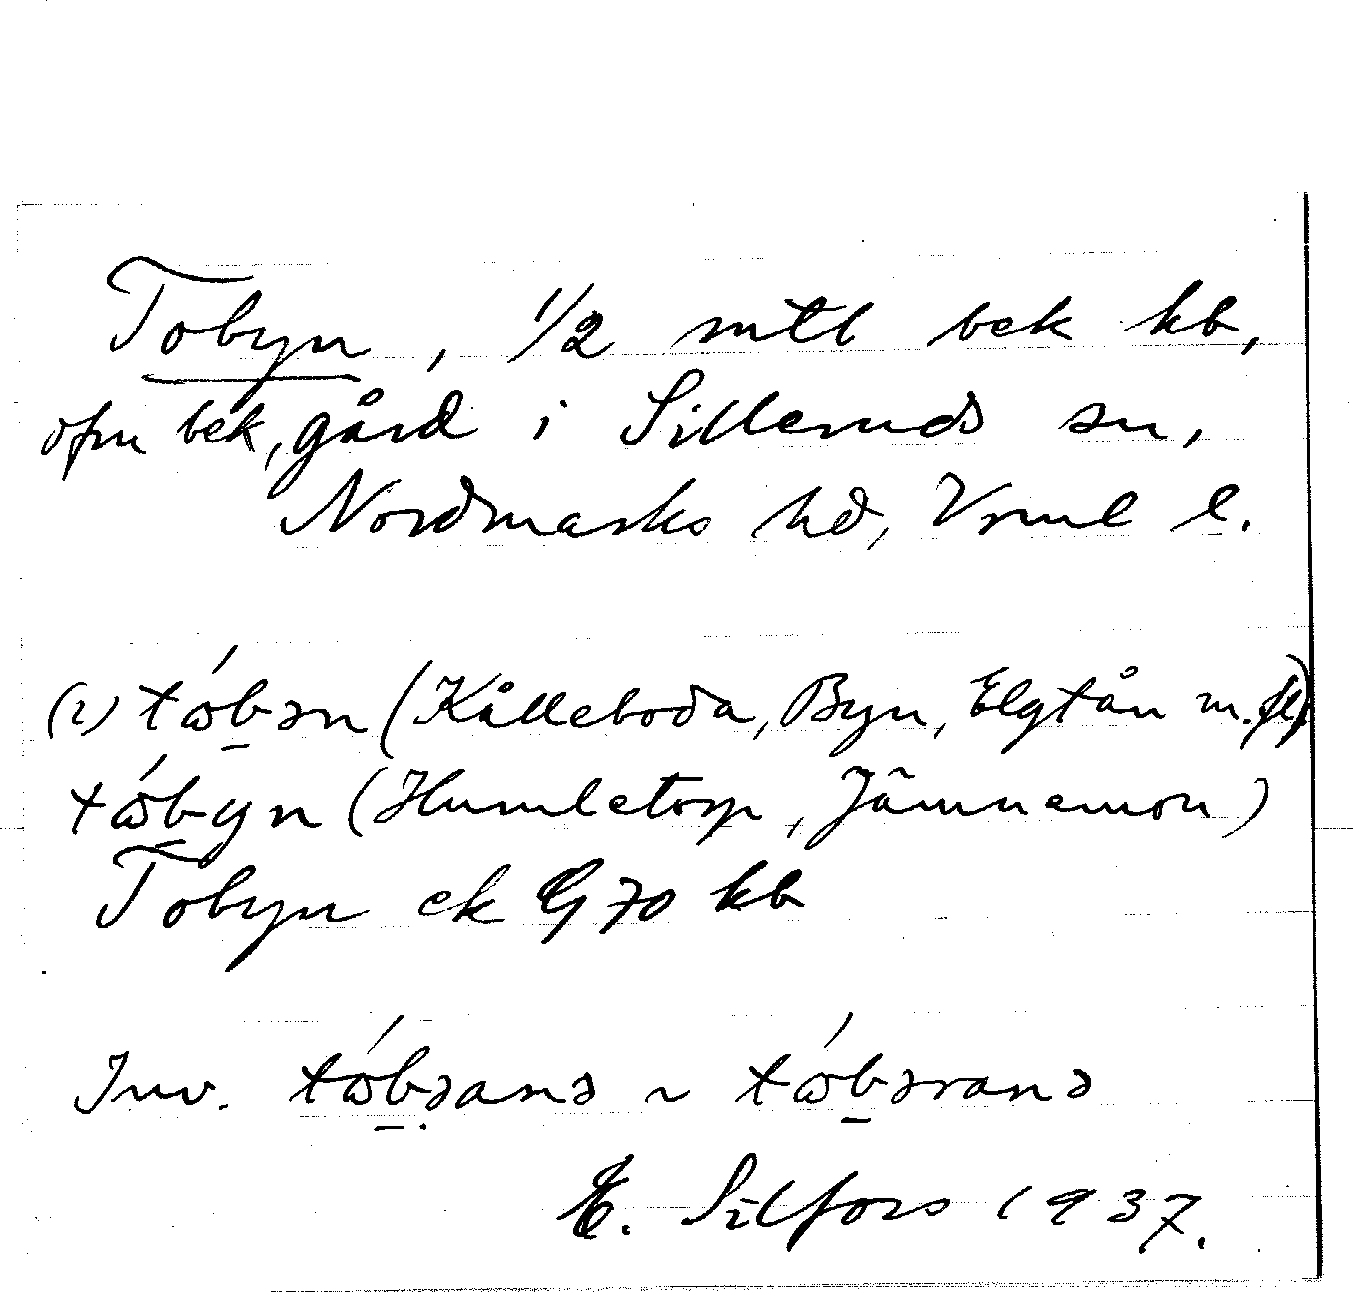 Tobyn, 1/2 mtl bek kb,
ofm bek, gård i Silleruds sn,
Nordmarks hd, Vrml l.
(i) tώbən (Kålleboda, Byn, Elgtån m.fl)
tώbyn (Humletorp, Jämnemon)
Tobyn ek G 70 kb
Inv. tώbəanə ~ tώbəranə
E. Silfors 1937.